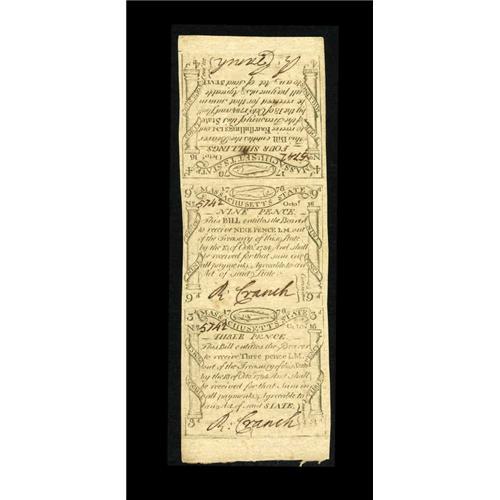 4 4
MASSACHUSETTS STATE
17 76
No. 5742 Octo.r 16
FOUR SHILLINGS
This Bill entitles the Bearer
to receive Four shillings L M. out
of the Treasury of this State
by the 18 of Octo.r 1784 And shall
be received for that sum in
all payments, Agreeable
to an Act of said STATE
R: Cranch
9d 9d
MASSACHUSETTS STATE
17 76
No. 5742 Octo.r 16
NINE PENCE
This BILL entitles the Bearer
to receive NINE PENCE L M. out
of the Treasury of this State
by the 18 of Octo.r 1784 And shall
be received for that sum in
all payments, Agreeable to an
Act of said State
R: Cranch
9d 9d
3d 3d
MASSACHUSETTS STATE
17 76
No. 5742 Octo.r 16
THREE PENCE
This Bill entitles the Bearer
to receive Three pence L M.
out of the Treasury of this State
by the 18 of Octo.r 1784 And shall
be received for that Sum in
all payments, Agreeable to
an Act of said STATE
R: Cranch
3d 3d